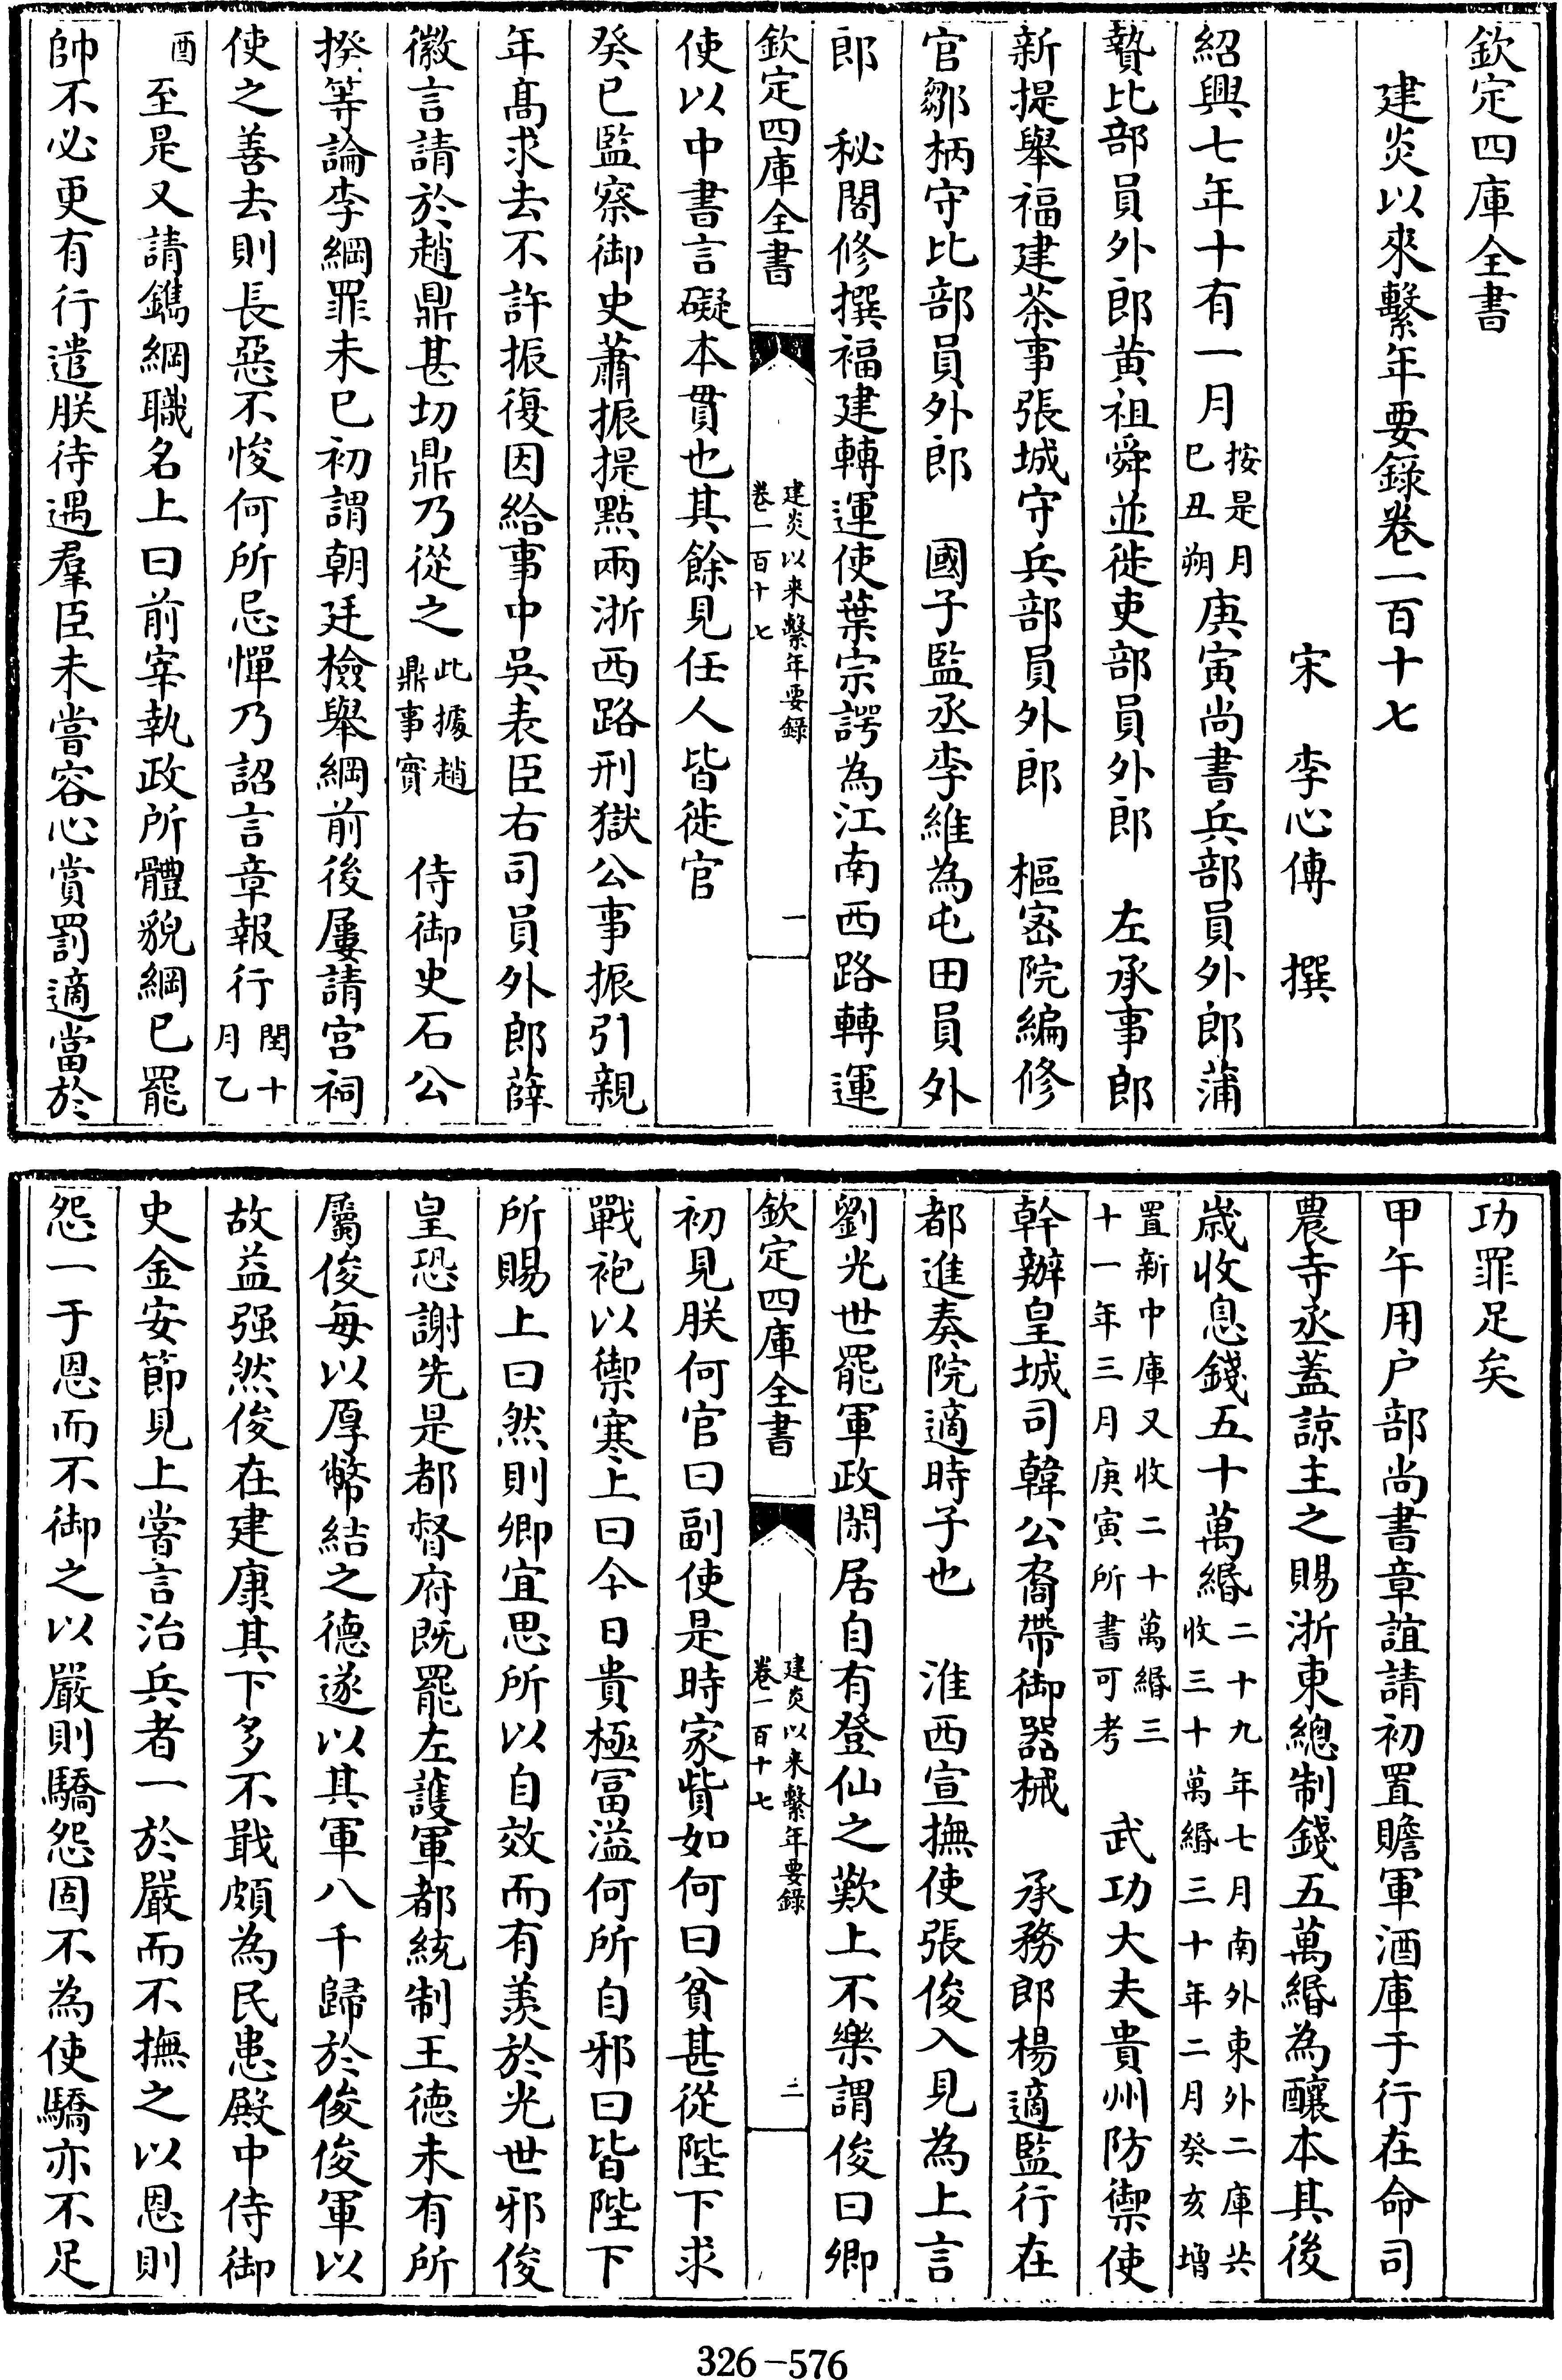 欽定四庫全書
建炎以來繫年要錄卷一百十七
宋 李心傳 撰
紹興七年十有一月按是月己丑朔庚寅尚書兵部員外郎蒲
贄比部員外郎黄祖舜並徙吏部員外郎 左承事郎
新提舉福建茶事張珹守兵部員外郎 樞宻院編修
官鄒柄守比部員外郎 國子監丞李維為屯田員外
郎 秘閣修撰福建轉運使葉宗諤為江南西路轉運
欽定四庫全書 建炎以来繫年要録 卷一百十七 一
使以中書言礙本貫也其餘見任人皆徙官
癸巳監察御史蕭振提點兩浙西路刑獄公事振引親
年髙求去不許振復因給事中吳表臣右司員外郎薛
徽言請於趙鼎甚切鼎乃從之此據趙鼎事實 侍御史石公
揆等論李綱罪未已初謂朝廷檢舉綱前後屢請宮祠
使之善去則長惡不悛何所忌憚乃詔言章報行閏十月乙
酉至是又請鐫綱職名上曰前宰執政所體貌綱已罷
帥不必更有行遣朕待遇羣臣未嘗容心賞罰適當於
功罪足矣
甲午用户部尚書章誼請初置贍軍酒庫于行在命司
農寺丞蓋諒主之賜浙東總制錢五萬緡為釀本其後
歳收息錢五十萬緡二十九年七月南外東外二庫共收三十萬緡三十年二月癸亥增
置新中庫又收二十萬緡三十一年三月庚寅所書可考 武功大夫貴州防禦使
幹辦皇城司韓公裔帶御器械 承務郎楊適監行在
都進奏院適時子也 淮西宣撫使張俊入見為上言
劉光世罷軍政閑居自有登仙之歎上不樂謂俊曰卿
欽定四庫全書 建炎以来繫年要録 卷一百十七 二
初見朕何官曰副使是時家貲如何曰貧甚從陛下求
戰袍以禦寒上曰今日貴極冨溢何所自邪曰皆陛下
所賜上曰然則卿宜思所以自效而有羨於光世邪俊
皇恐謝先是都督府既罷左䕶軍都統制王德未有所
屬俊每以厚幣結之德遂以其軍八千歸於俊俊軍以
故益强然俊在建康其下多不戢頗為民患殿中侍御
史金安節見上嘗言治兵者一於嚴而不撫之以恩則
怨一于恩而不御之以嚴則驕怨固不為使驕亦不足
326-576